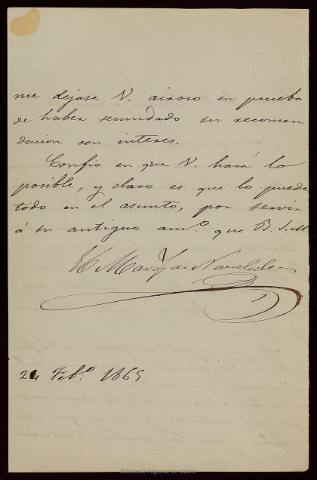 me dejase V. airoso en prueba
de haber secundado su recomen
dacion con interes.
Confio en que V. hará lo
posible, y claro es que lo puede
todo en el asunto, por servir
á su antiguo am.º que B. S. M.
El Marq. de
24 Feb.º 1865